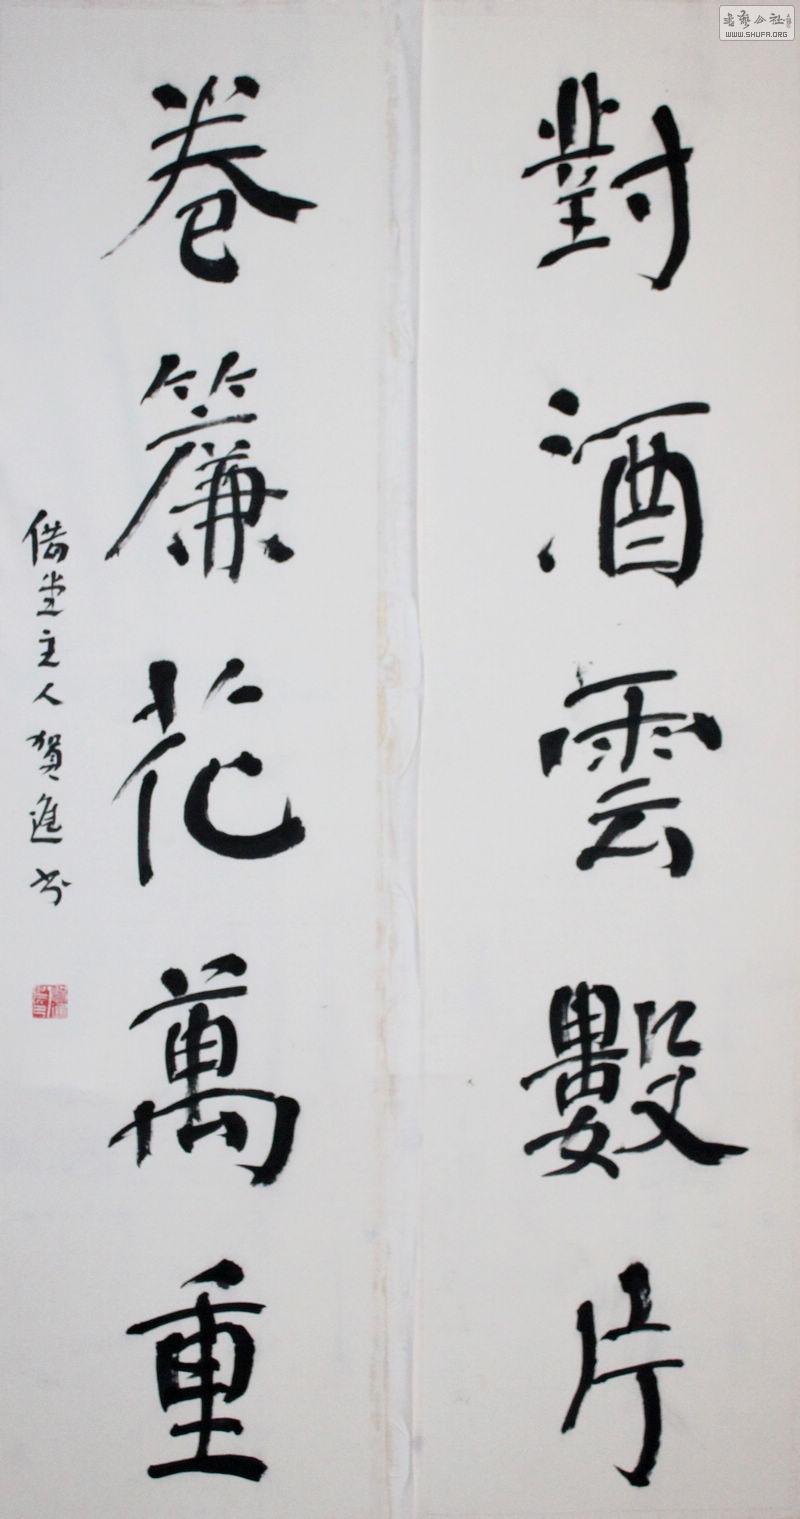 對酒雲數片
卷簾花萬重
借堂主人賀進書
書藝公社
WWW.SHUFA.ORG